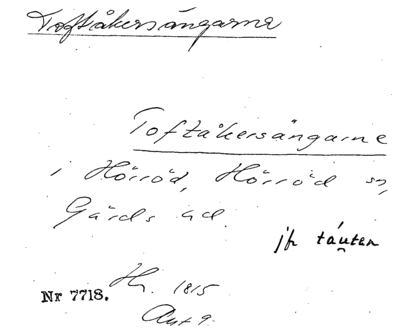 Toftåkersängarne
Toftåkersängarne
i Hörröd, Hörröd sn,
Gärds hd.
jfr táu̯ten
Nr 7718.
Hy. 1815
Akt 9.